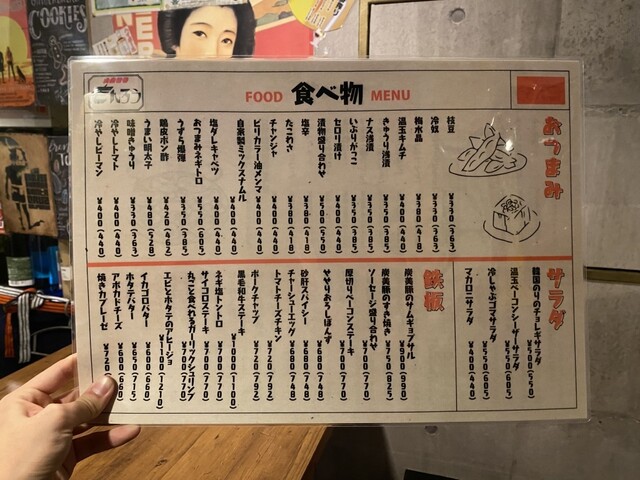 FOOD 食べ物 MENU
おつまみ
枝豆 ¥330(363)
冷奴 ¥330(363)
梅水晶 ¥380(418)
温玉キムチ ¥400(440)
きゅうり浅漬 ¥350(385)
ナス浅漬 ¥350(385)
いぶりがっこ ¥350(385)
セロリ漬け ¥400(440)
漬物盛り合わせ ¥500(550)
塩辛 ¥380(418)
たこわさ ¥380(418)
チャンジャ ¥400(440)
ピリカラー油メンマ ¥400(440)
自家製ミックスナムル ¥400(440)
塩ダレキャベツ ¥400(440)
おつまみネギトロ ¥550(605)
うずら爆弾 ¥350(385)
鶏皮ポン酢 ¥420(462)
うまい明太子 ¥480(528)
味噌きゅうり ¥330(363)
冷やしトマト ¥400(440)
冷やしピーマン ¥400(440)
サラダ
韓国のりのチョレギサラダ ¥500(550)
温玉ベーコンシーザーサラダ ¥550(605)
冷しゃぶゴマサラダ ¥550(605)
マカロニサラダ ¥400(440)
鉄板
炭美豚のサムギョプサル ¥900(990)
炭美豚のすき焼き ¥750(825)
ソーセージ盛り合わせ ¥700(770)
厚切りベーコンステーキ ¥700(770)
ヤゲンおろしぽんず ¥680(748)
砂肝スパイシー ¥600(660)
チャーシューエッグ ¥680(748)
トマトチーズチキン ¥720(792)
ポークチャップ ¥720(792)
黒毛和牛ステーキ ¥1000(1100)
ネギ塩トントロ ¥700(770)
サイコロステーキ ¥700(770)
丸ごと食べれるガーリックシュリンプ ¥700(770)
エビとホタテのアヒージョ ¥1100(1210)
イカゴロバター ¥600(660)
ホタテバター ¥650(715)
アボカドチーズ ¥600(660)
焼きカプレーゼ ¥720